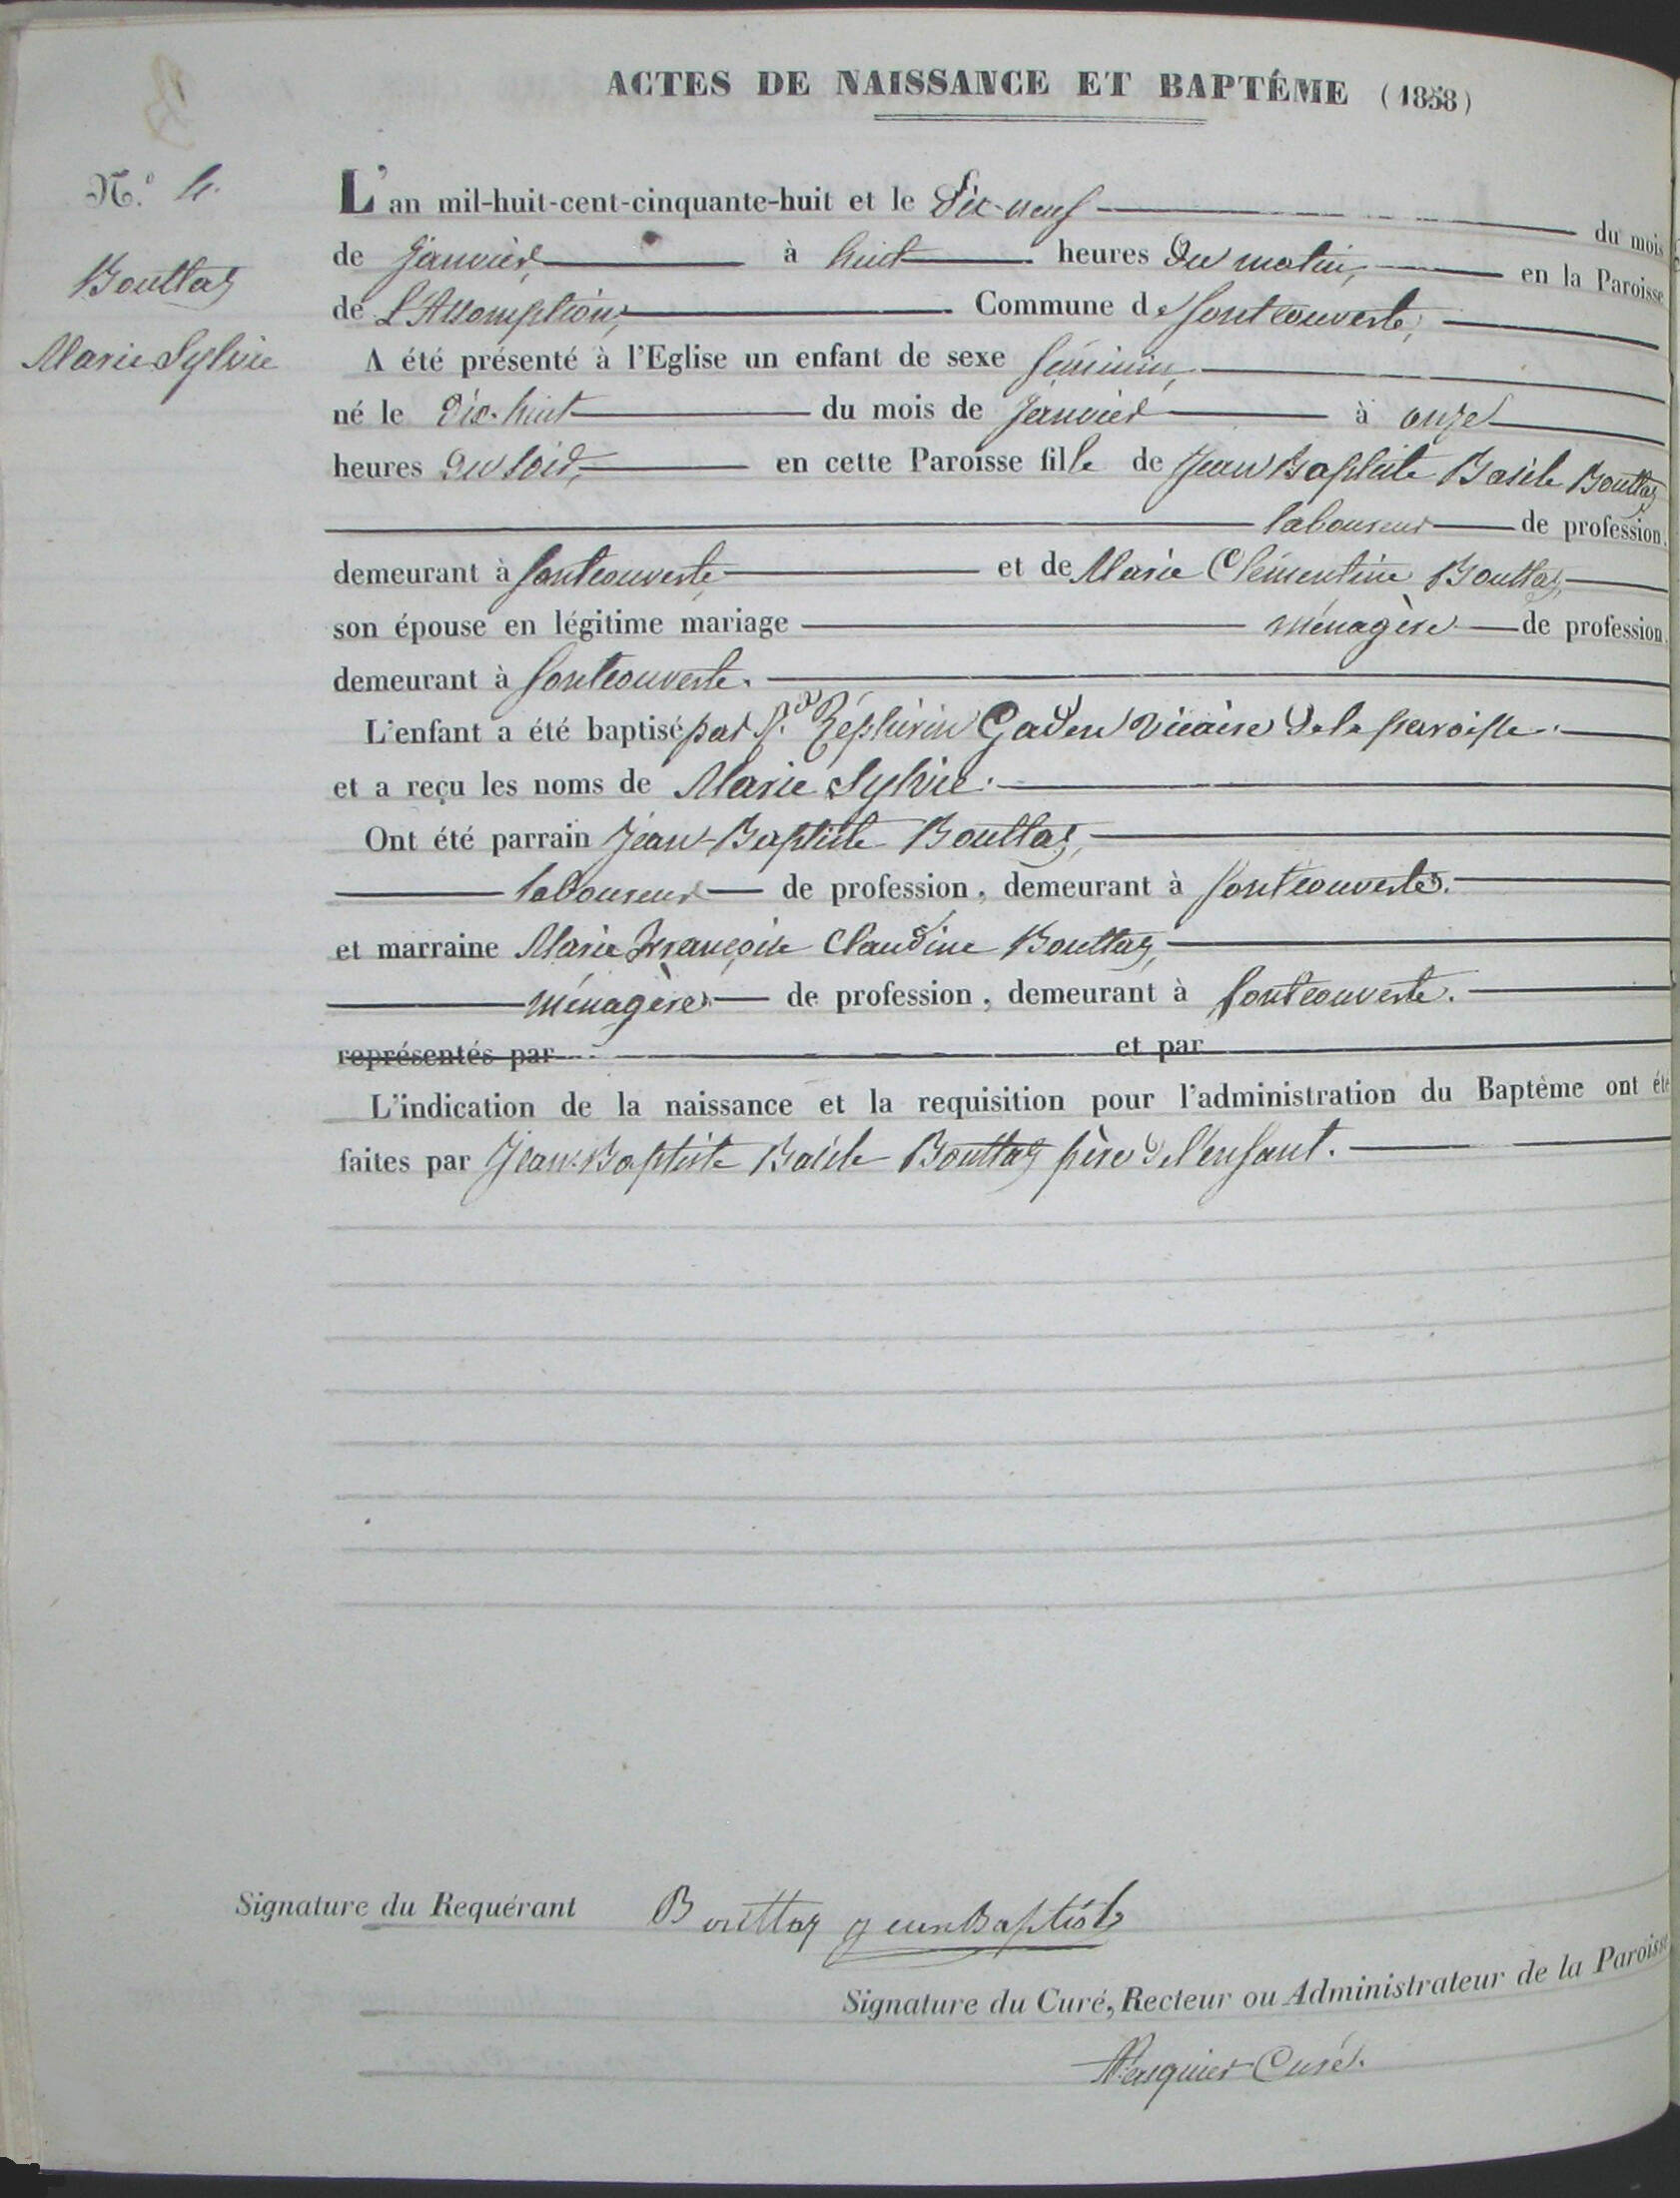 ACTES DE NAISSANCE ET BAPTÊME (1858)
N.° 4.
Bouttaz
Marie Sylvie
L'an mil-huit-cent-cinquante-huit et le Dix-neuf du mois
de Janvier à huit heures Du matin, en la Paroisse
de L'Assomption, Commune de Fontcouverte,
A été présenté à l'Eglise un enfant de sexe féminin,
né le Dix-huit du mois de Janvier à onze
heures Du soir, en cette Paroisse fille de Jean Baptiste Basile Bouttaz
laboureur de profession,
demeurant à fontcouverte, et de Marie Clémentine Bouttaz,
son épouse en légitime mariage ménagère de profession,
demeurant à fontcouverte.
L'enfant a été baptisé par Zéphirin Gaden vicaire de la paroisse.
et a reçu les noms de Marie Sylvie.
Ont été parrain Jean-Baptiste Bouttaz,
laboureur de profession, demeurant à fontcouverte.
et marraine Marie Françoise Claudine Bouttaz,
ménagère de profession, demeurant à fontcouverte.
représentés par et par
L'indication de la naissance et la requisition pour l'administration du Baptême ont été
faites par Jean-Baptiste Basile Bouttaz père de l'enfant.
Signature du Requérant Bouttaz jeanBaptiste
Signature du Curé, Recteur ou Administrateur de la Paroisse
Pasquier Curé.